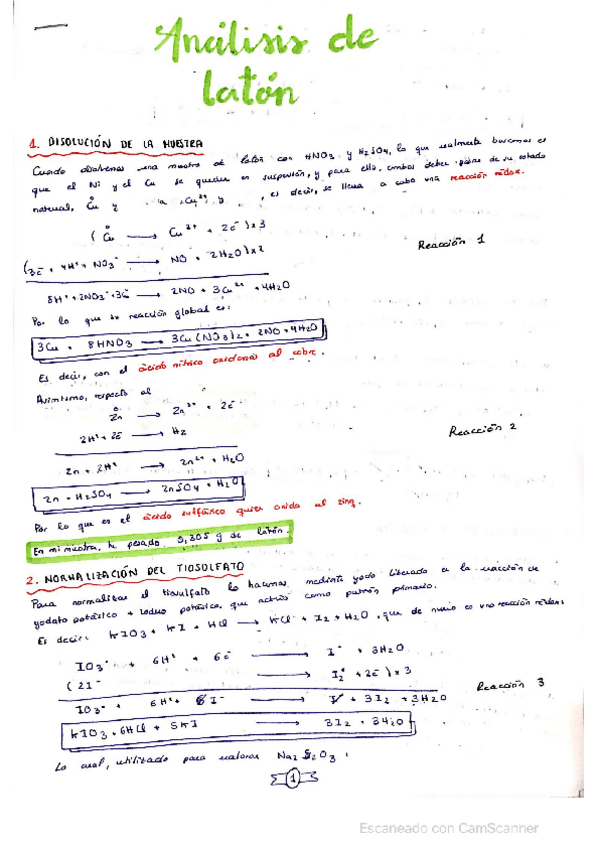 Análisis de
latón
1. DISOLUCIÓN DE LA MUESTRA
Cuando disolvemos una muestra de latón con HNO3 y H2SO4, lo que realmente buscamos es
que el Ni y el Cu se queden en suspensión, y para ello, ambos deben de su estado
natural, Cu y Cu2+ y , es decir, se lleva a cabo una reacción rédox.
( Cu → Cu2+ + 2e- ) x3
Reacción 1
(3e- + 4H+ + NO3- → NO + 2H2O) x2
8H+ + 2NO3- + 3Cu → 2NO + 3Cu2+ + 4H2O
Por lo que su reacción global es:
3Cu + 8HNO3 → 3Cu(NO3)2 + 2NO + 4H2O
Es decir, con el ácido nítrico oxidamos al cobre.
Asimismo, respecto al
Zn → Zn2+ + 2e-
2H+ + 2e- → H2
Reacción 2
Zn + 2H+ → Zn2+ + H2O
Zn + H2SO4 → ZnSO4 + H2O
Por lo que es el ácido sulfúrico quien oxida al zinc.
En mi muestra, he pesado 0,305 g de latón.
2. NORMALIZACIÓN DEL TIOSULFATO
Para normalizar el tiosulfato lo hacemos mediante yodo liberado en la reacción de
yodato potásico + Ioduro potásico, que actúa como patrón primario.
Es decir: KIO3 + KI + HCl → KCl + I2 + H2O, que de nuevo es una reacción rédox:
IO3- + 6H+ + 6e- → I- + 3H2O
( 2I- → I2 + 2e- ) x3
Reacción 3
IO3- + 6H+ + 6I- → I- + 3I2 + 3H2O
KIO3 + 6HCl + 5KI → 3I2 + 3H2O
Lo cual, utilizado para valorar Na2S2O3 :
1
Escaneado con CamScanner